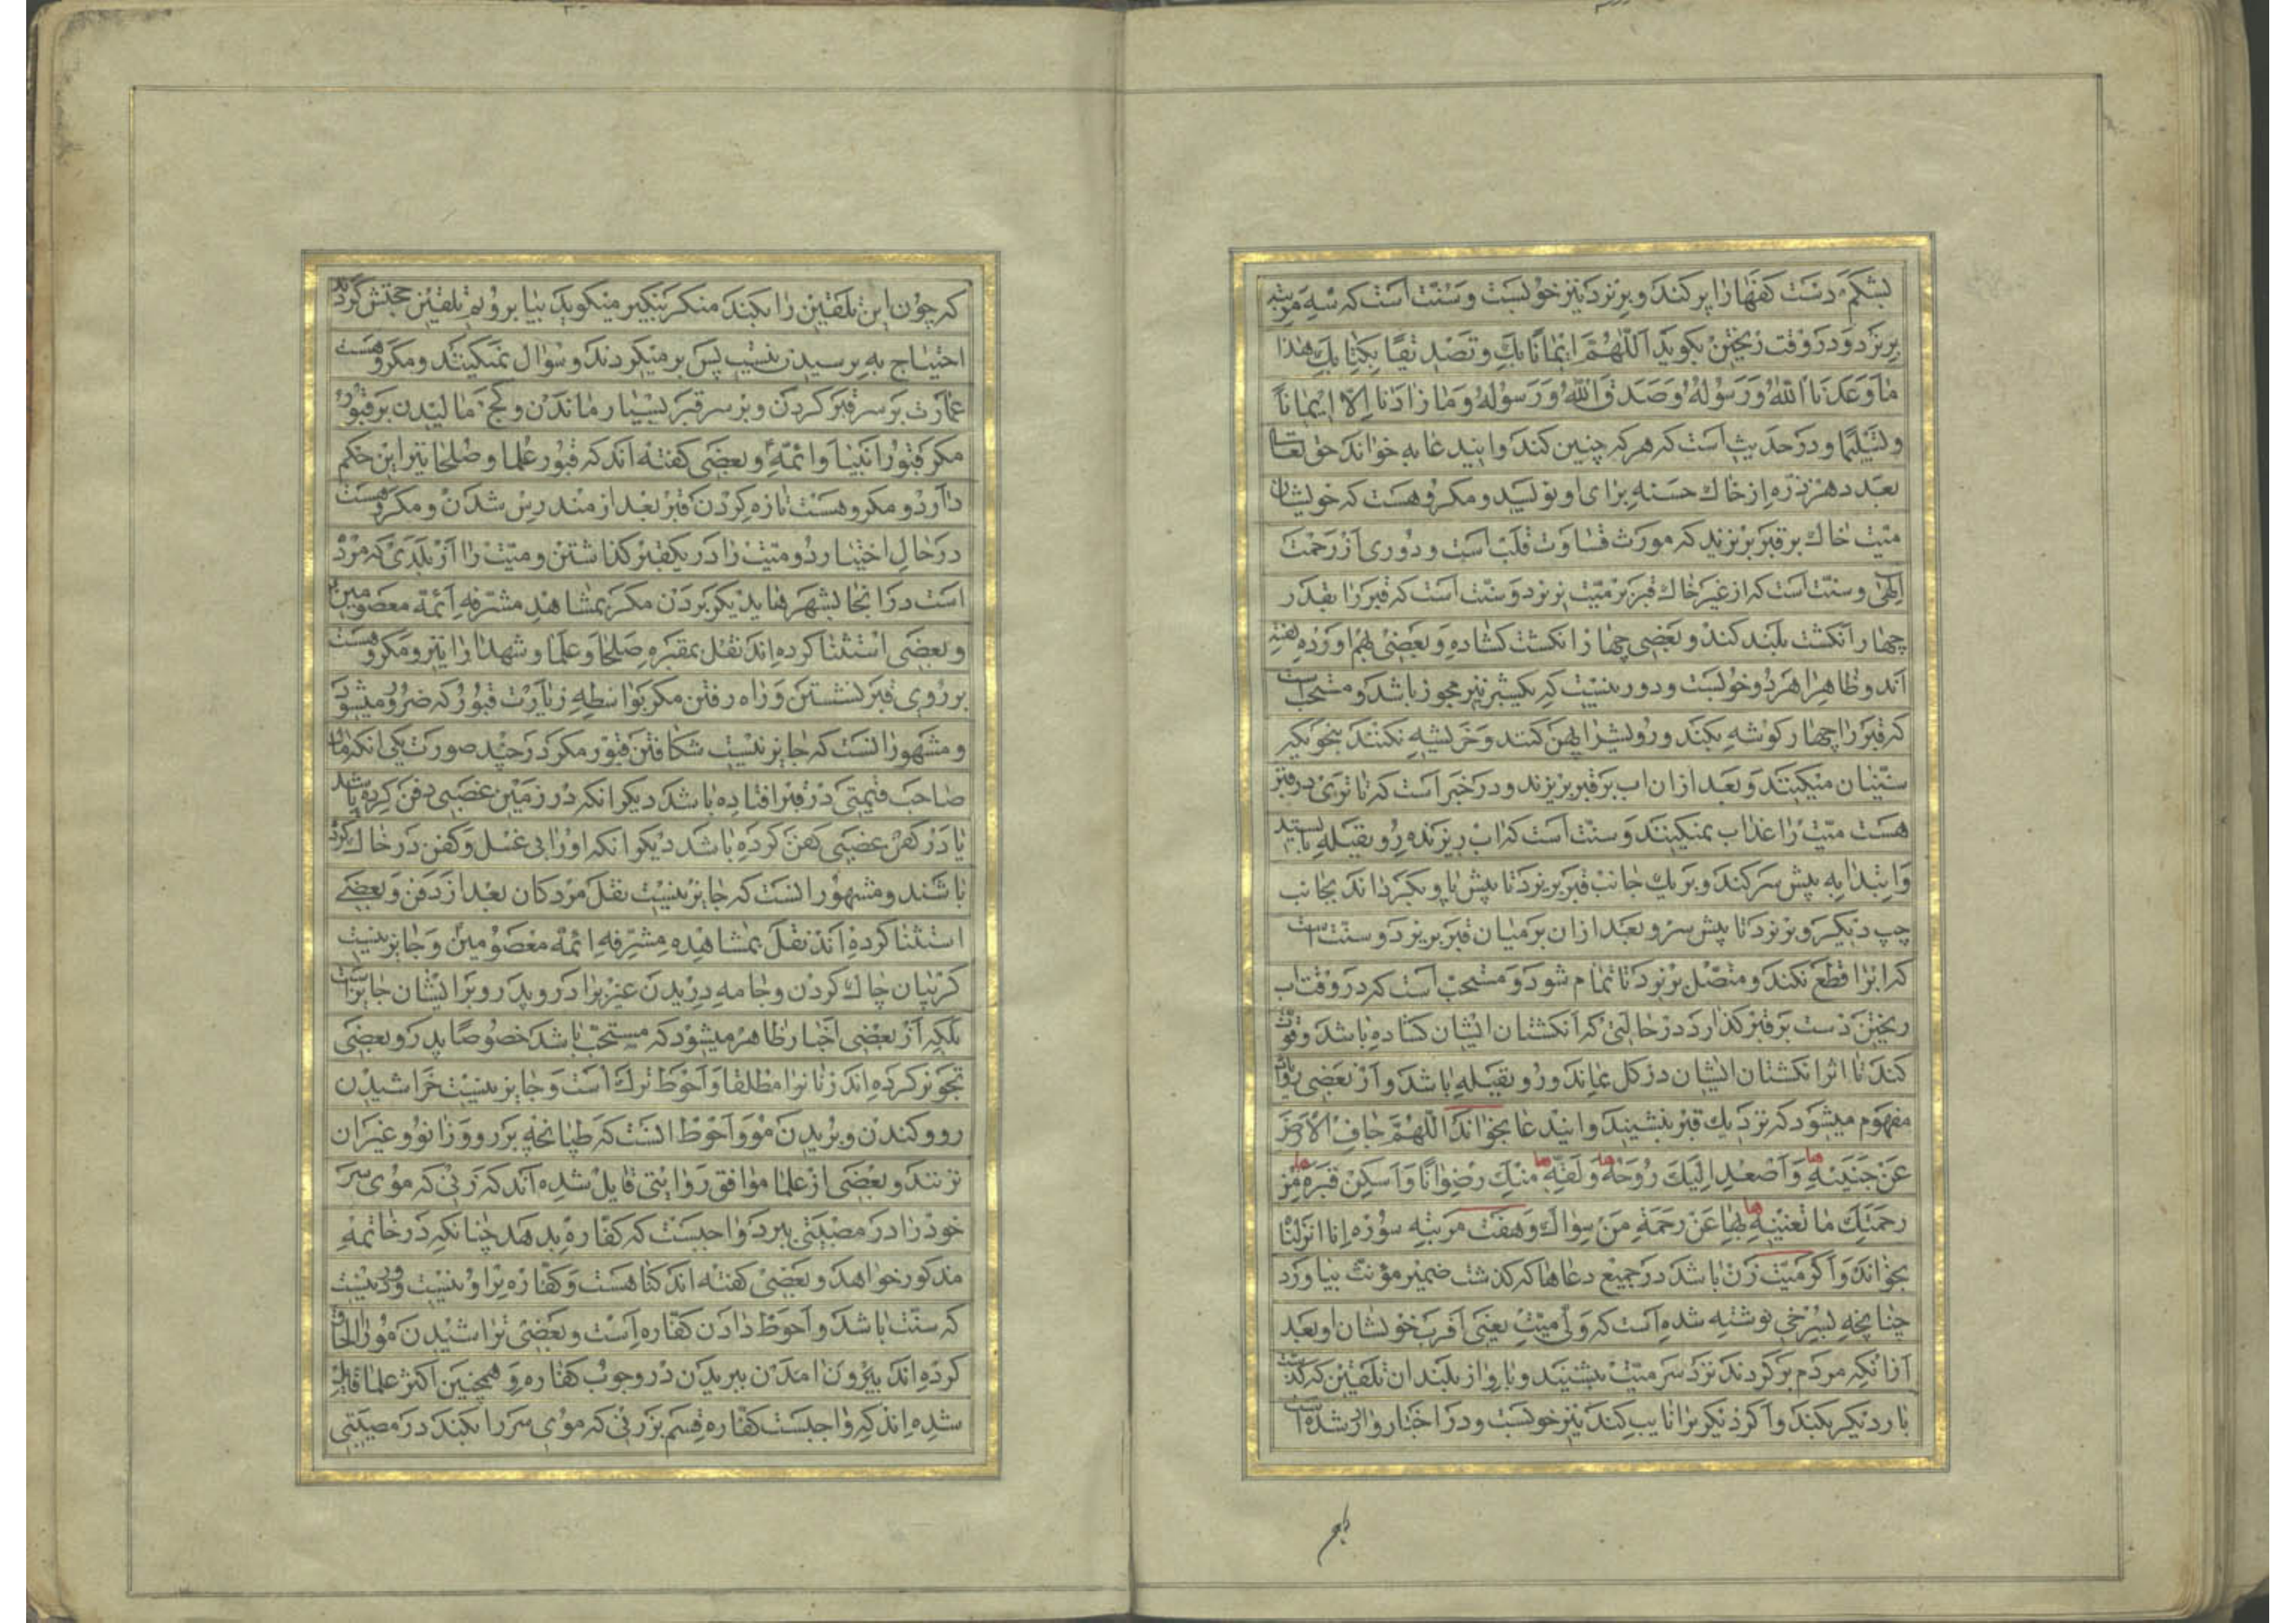 بشکم دست کفها را پر کند و بریزد نیز خوبست و سنت است که سه مرتبه
بریزد و در وقت ریختن بکوید اللهم ایمانا بک و تصدیقا بکتابک هذا
ما وعدنا الله و رسوله و صدق الله و رسوله و ما زادنا الا ایمانا
و تسلیما و در حدیث است که هر که چنین کند و این دعا به خواند حق تعالی
بعدد هر ذره از خاک حسنه برای او نویسد و مکروهست که خویشان
میت خاک بر قبر بریزند که مورث قساوت قلب است و دوری از رحمت
الهی و سنت است که از غیر خاک قبر بر میت نریزد و سنت است که قبر را بقدر
چهار انکشت بلند کند و بعضی چهار انکشت کشاده و بعضی بهم اورده کفته
اند و ظاهرا هر دو خوبست و دور نیست که یکشبر نیز مجوز باشد و مستحب است
که قبر را چهار کوشه بکند و رویش را پهن کنند و خر پشته نکنند بنحویکه
سنیان میکنند و بعد از ان اب بر قبر بریزند و در خبر است که تا تری در قبر
هست میت را عذاب نمیکنند و سنت است که اب ریزنده رو بقبله بایستد
و ابتدا به پیش سر کند و بر یک جانب قبر بریزد تا پیش پا و بکرداند بجانب
چپ دیکر و بریزد تا پیش سر و بعد از ان بر میان قبر بریزد و سنت است
که اب را قطع نکند و متصل بریزد تا تمام شود و مستحب است که در وقت اب
ریختن دست بر قبر کذارد در حالتی که انکشتان ایشان کشاده باشد و قوت
کند تا اثر انکشتان ایشان در کل بماند و رو بقبله باشد و از بعضی روایات
مفهوم میشود که نزدیک قبر بنشیند و این دعا بخواند اللهم جاف الارض
عن جنبیه و اصعد الیک روحه و لقه منک رضوانا و اسکن قبره من
رحمتک ما تغنیه بها عن رحمة من سواک و هفت مرتبه سوره انا انزلناه
بخواند و اکر میت زن باشد در جمیع دعاها که کذشت ضمیر مؤنث بیاورد
چنانچه بسرخی نوشته شده است که ولی میت یعنی اقرب خویشان او بعد
از انکه مردم برکردند نزد سر میت بنشیند و باواز بلند ان تلقین که کذشت
بار دیکر بکند و اکر دیکریرا نایب کند نیز خوبست و در اخبار وارد شده است
که چون این تلقین را بکند منکر بنکیر میکوید بیا برویم تلقین حجتش کردند
احتیاج به پرسیدن نیست پس بر میکردند و سؤال نمیکنند و مکروهست
عمارت بر سر قبر کردن و بر سر قبر بسیار ماندن و کج مالیدن بر قبور
مکر قبور انبیا و ائمه و بعضی کفته اند که قبور علما و صلحا نیز این حکم
دارد و مکروهست تازه کردن قبر بعد از مندرس شدن و مکروهست
در حال اختیار دو میت را در یکقبر کذاشتن و میت را از بلدی که مرده
است در انجا بشهرهای دیکر بردن مکر بمشاهد مشرفه ائمه معصومین
و بعضی استثنا کرده اند نقل بمقبره صلحا و علما و شهدا را نیز و مکروهست
بر روی قبر نشستن و راه رفتن مکر بواسطه زیارت قبور که ضرور میشود
و مشهور انست که جایز نیست شکافتن قبور مکر در چند صورت یکی انکه مال
صاحب قیمتی در قبر افتاده باشد دیکر انکه در زمین غصبی دفن کرده باشد
یا در کفن غصبی کفن کرده باشد دیکر انکه او را بی غسل و کفن در خاک کرده
باشند و مشهور انست که جایز نیست نقل مردکان بعد از دفن و بعضی
استثنا کرده اند نقل بمشاهده مشرفه ائمه معصومین و جایز نیست
کریبان چاک کردن و جامه دریدن غیر برادر و پدر و بر ایشان جایز است
بلکه از بعضی اخبار ظاهر میشود که مستحب باشد خصوصا پدر و بعضی
تجویز کرده اند زنانرا مطلقا و احوط ترک است و جایز نیست خراشیدن
رو و کندن و بریدن مو و احوط انست که طپانچه بر رو و زانو و غیر ان
نزنند و بعضی از علما موافق روایتی قایل شده اند که زنی که موی سر
خود را در مصیبتی ببرد واجبست که کفاره بدهد چنانکه در خاتمه
مذکور خواهد و بعضی کفته اند کناهست و کفاره برا و نیست و دور نیست
که سنت باشد و احوط دادن کفاره است و بعضی تراشیدن مو را الحاق
کرده اند بیرون امدن ببریدن در وجوب کفاره و همچنین اکثر علما قایل
شده اند که واجبست کفاره قسم بر زنی که موی سر را بکند در مصیبتی